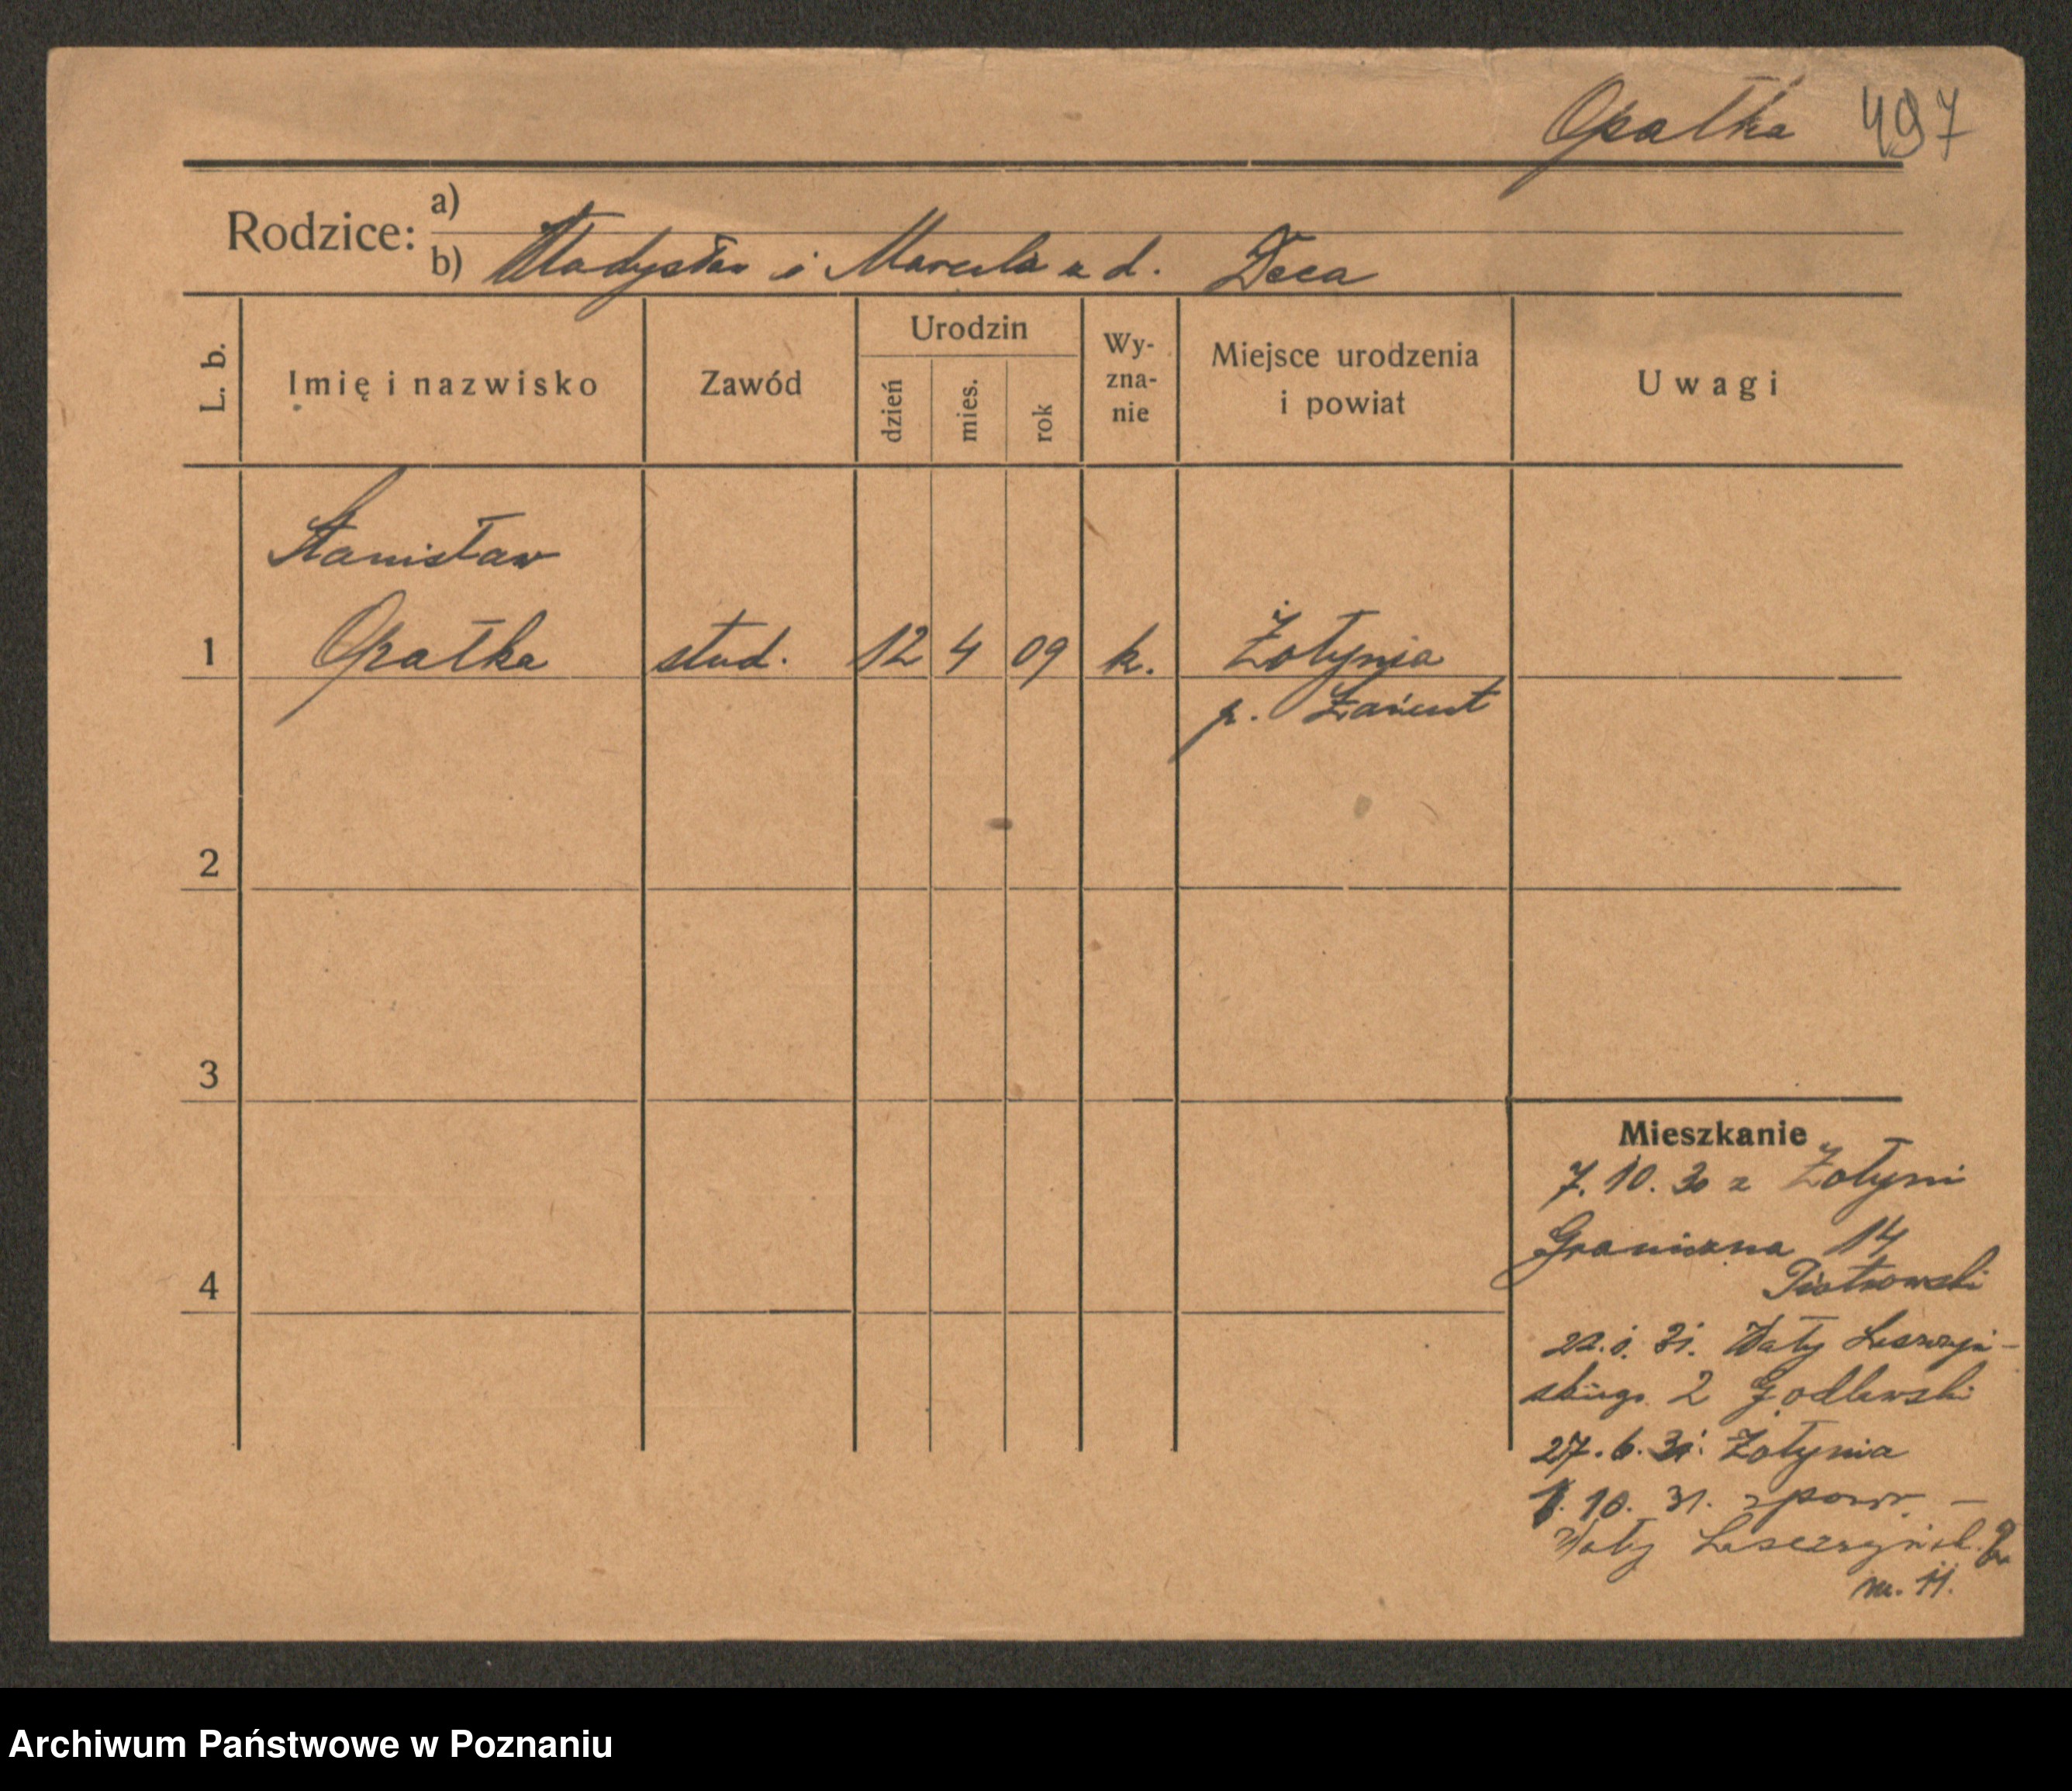 Opałka 497
Rodzice:
a)
b) Władysław i Marcela z d. Deca
L. b.
Imię i nazwisko
Zawód
Urodzin
dzień
mies.
rok
Wy-
zna-
nie
Miejsce urodzenia
i powiat
Uwagi
Stanisław
1 Opałka stud. 12 4 09 k. Żołynia
p. Łańcut
2
3
4
Mieszkanie
7. 10. 30 z Żołyni
Graniczna 14
Piotrowski
31. Wały Leszczyń-
skiego 2 Godlewski
27. 6. 31. Żołynia
1. 10. 31. zpowr –
Wały Leszczyńsk. 2
m. 11.
Archiwum Państwowe w Poznaniu